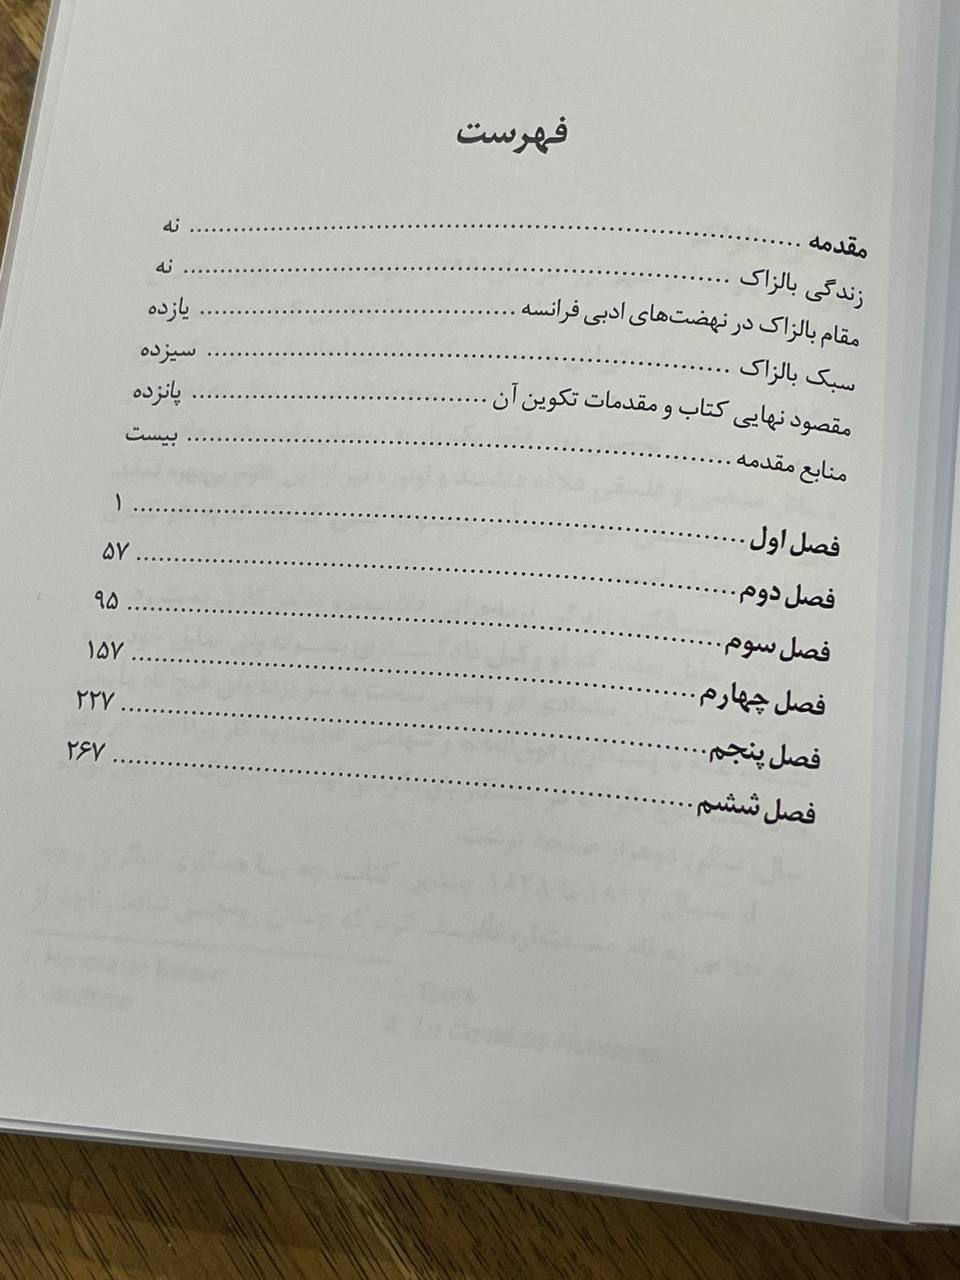 فهرست
مقدمه ........ نه
زندگی بالزاک ........ نه
مقام بالزاک در نهضت‌های ادبی فرانسه ........ یازده
سبک بالزاک ........ سیزده
مقصود نهایی کتاب و مقدمات تکوین آن ........ پانزده
منابع مقدمه ........ بیست
فصل اول ........ ۱
فصل دوم ........ ۵۷
فصل سوم ........ ۹۵
فصل چهارم ........ ۱۵۷
فصل پنجم ........ ۲۲۷
فصل ششم ........ ۲۶۷